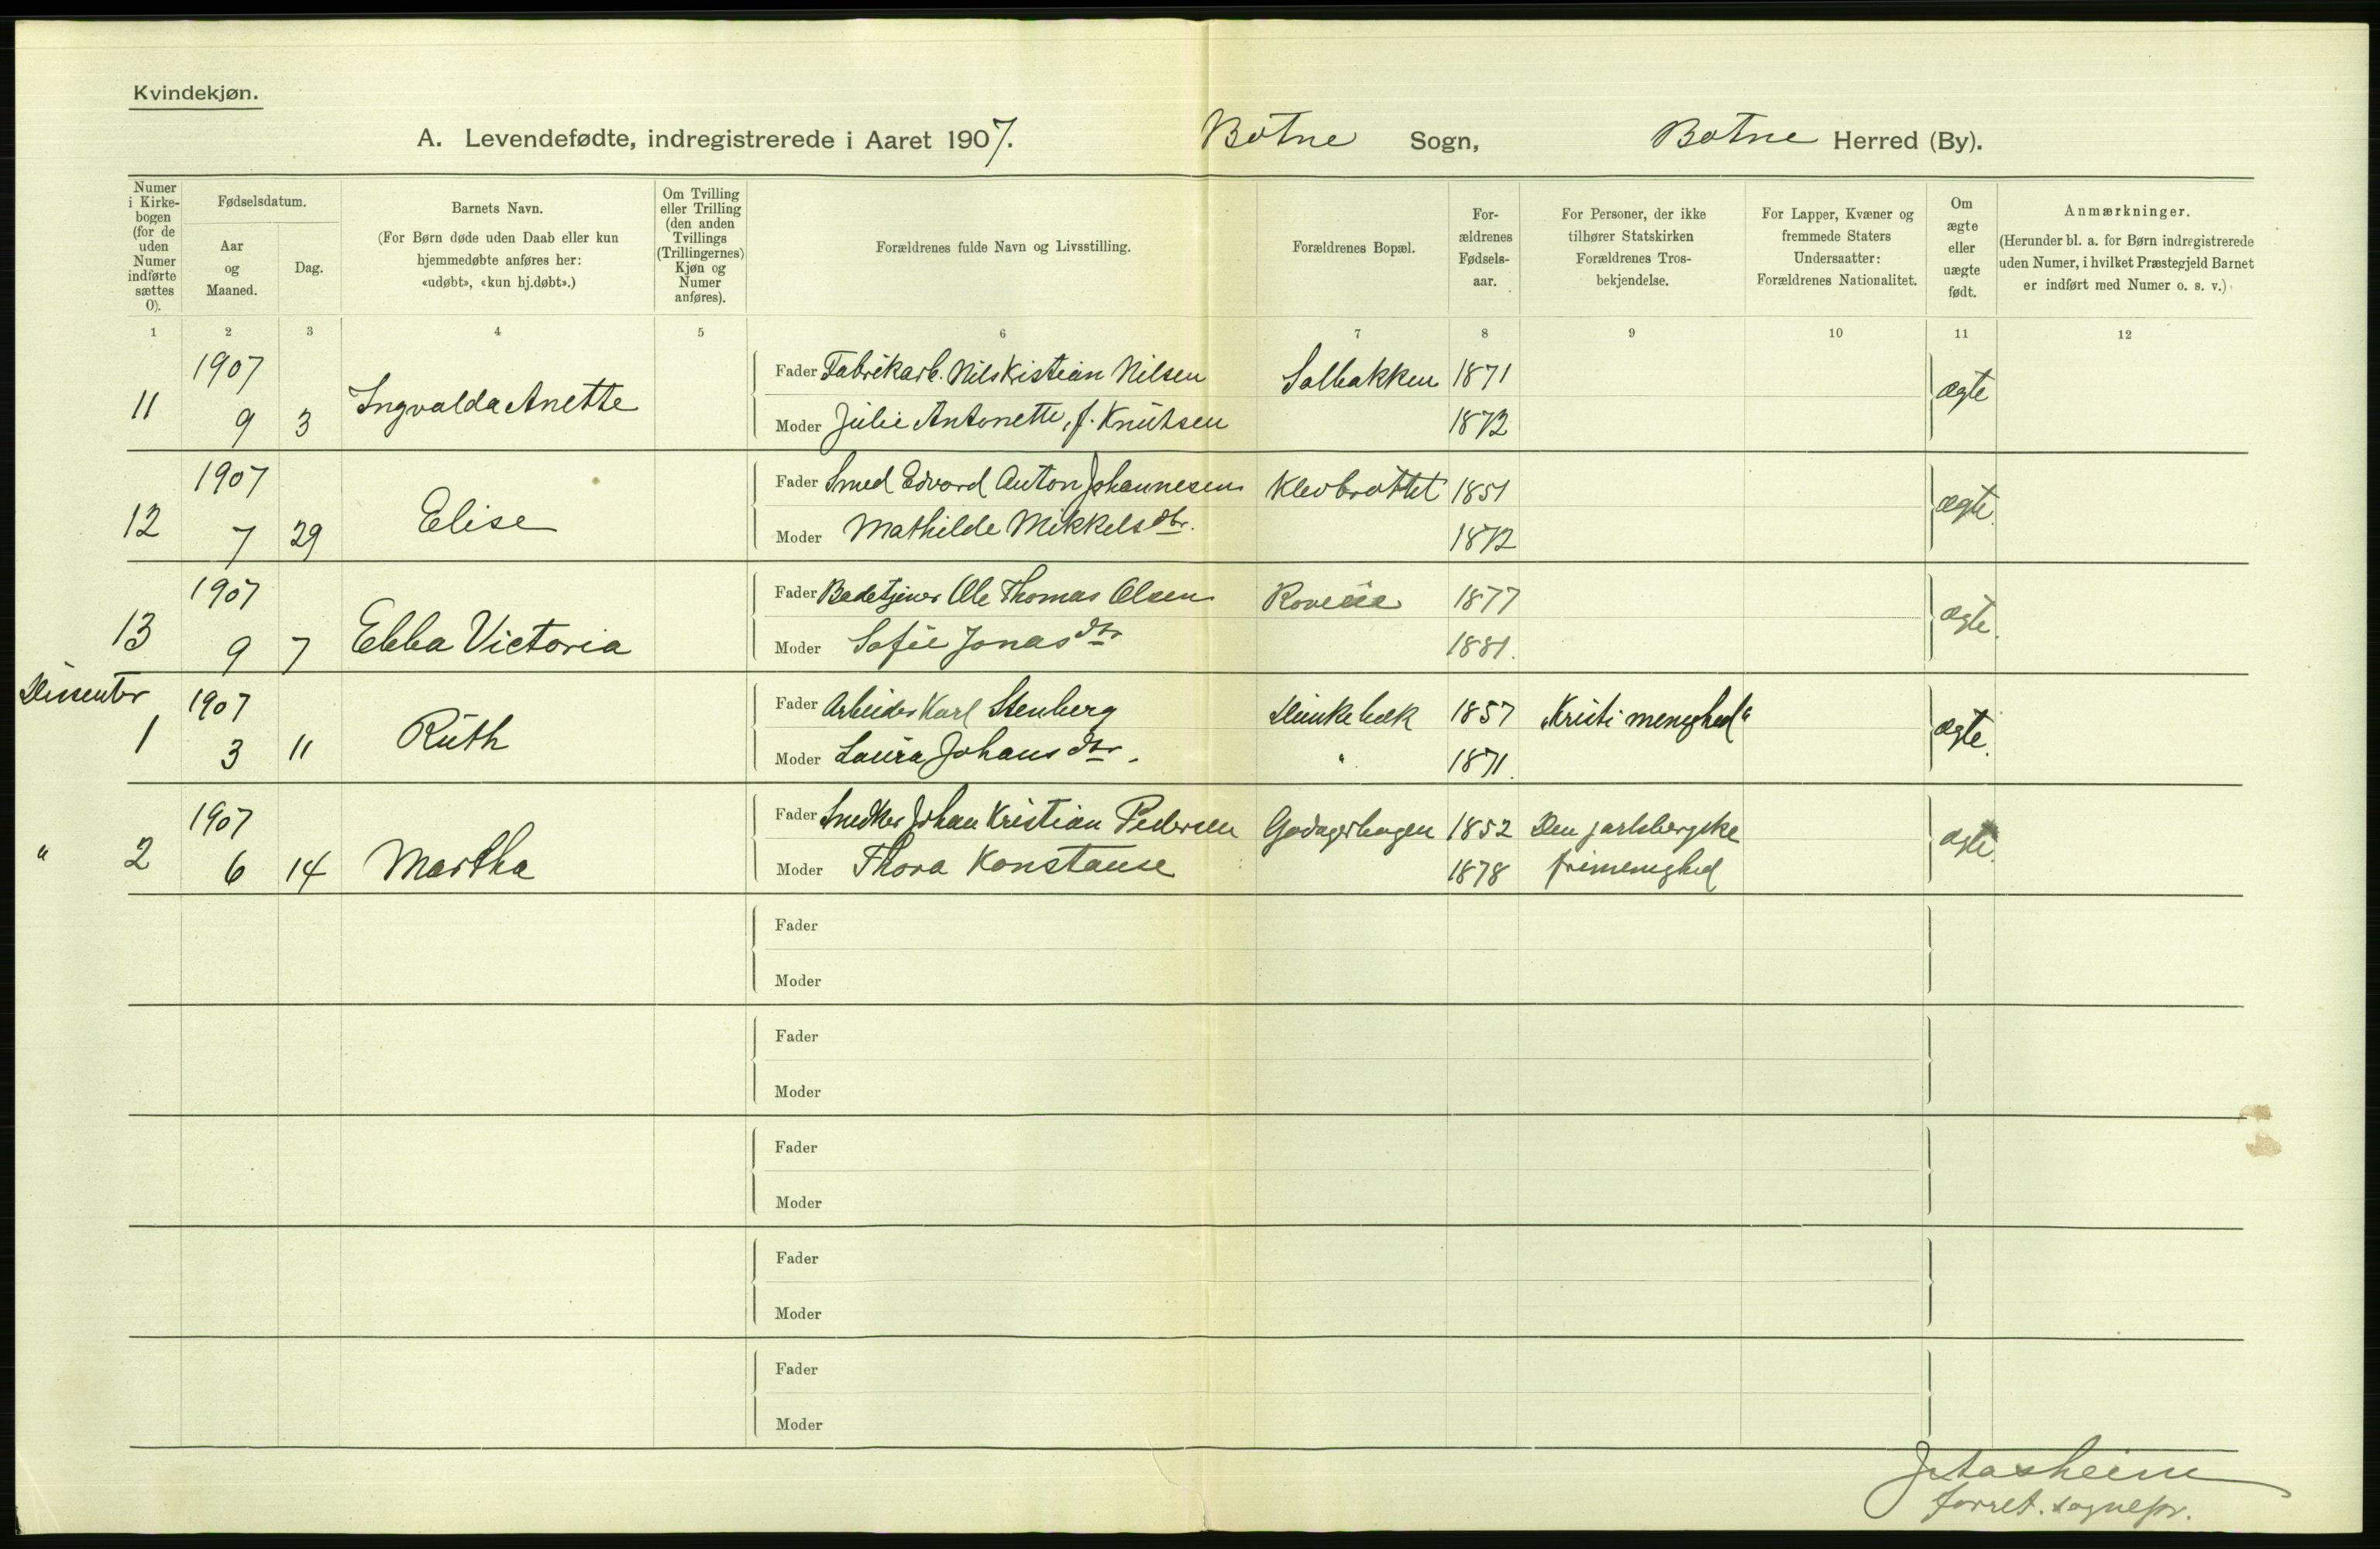 Kvindekjøn.
A. Levendefødte, indregistrerede i Aaret 1907. Botne Sogn, Botne Herred (By).
Numer i Kirkebogen (for de uden Numer indførte sættes 0).
Fødselsdatum.
Aar og Maaned.
Dag.
Barnets Navn.
(For Børn døde uden Daab eller kun
hjemmedøbte anføres her:
«udøbt», «kun hj.døbt».)
Om Tvilling
eller Trilling
(den anden
Tvillings
(Trillingernes)
Kjøn og
Numer
anføres).
Forældrenes fulde Navn og Livsstilling.
Forældrenes Bopæl.
For-
ældrenes
Fødsels-
aar.
For Personer, der ikke
tilhører Statskirken
Forældrenes Tros-
bekjendelse.
For Lapper, Kvæner og
fremmede Staters
Undersaatter:
Forældrenes Nationalitet.
Om
ægte
eller
uægte
født.
Anmærkninger.
(Herunder bl. a. for Børn indregistrerede
uden Numer, i hvilket Præstegjeld Barnet
er indført med Numer o. s. v.)
1 2 3 4 5 6 7 8 9 10 11 12
1907 Fader Fabrikarb. Nils Kristian Nilsen Solbakken 1871 ægte
11 9 3 Ingvalda Anette Moder Julie Antonette, f. Knutsen 1872
1907 Fader Smed Edvard Anton Johannesen Klevbrottet 1851 ægte.
12 7 29 Elise Moder Mathilde Mikkelsdtr. 1872
1907 Fader Badetjener Ole Thomas Olsen 1877 ægte.
13 9 7 Ebba Victoria Moder Sofie Jonasdtr 1881.
Dissenter 1907 Fader Arbeider Karl Stenberg 1857 "Kristi menighed" ægte.
1 3 11 Ruth Moder Laura Johansdtr. " 1871.
1907 Fader Snedker Johan Kristian Pedersen Godagerhagen 1852 Den jarlsbergske ægte.
" 2 6 14 Martha Moder Thora Konstanse 1878 frimenighed
Fader
Moder
Fader
Moder
Fader
Moder
Fader
Moder
Fader
Moder
forret. sognepr.